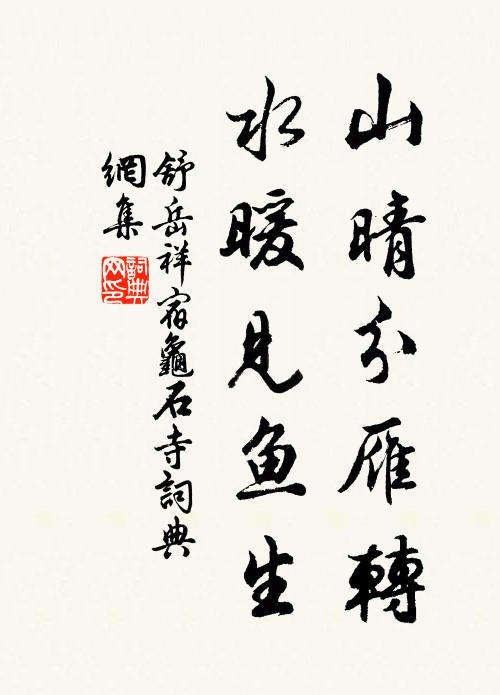 山晴分雁轉
水暖見鱼生
舒岳祥宿龜石寺詞典
網集
詞典網印